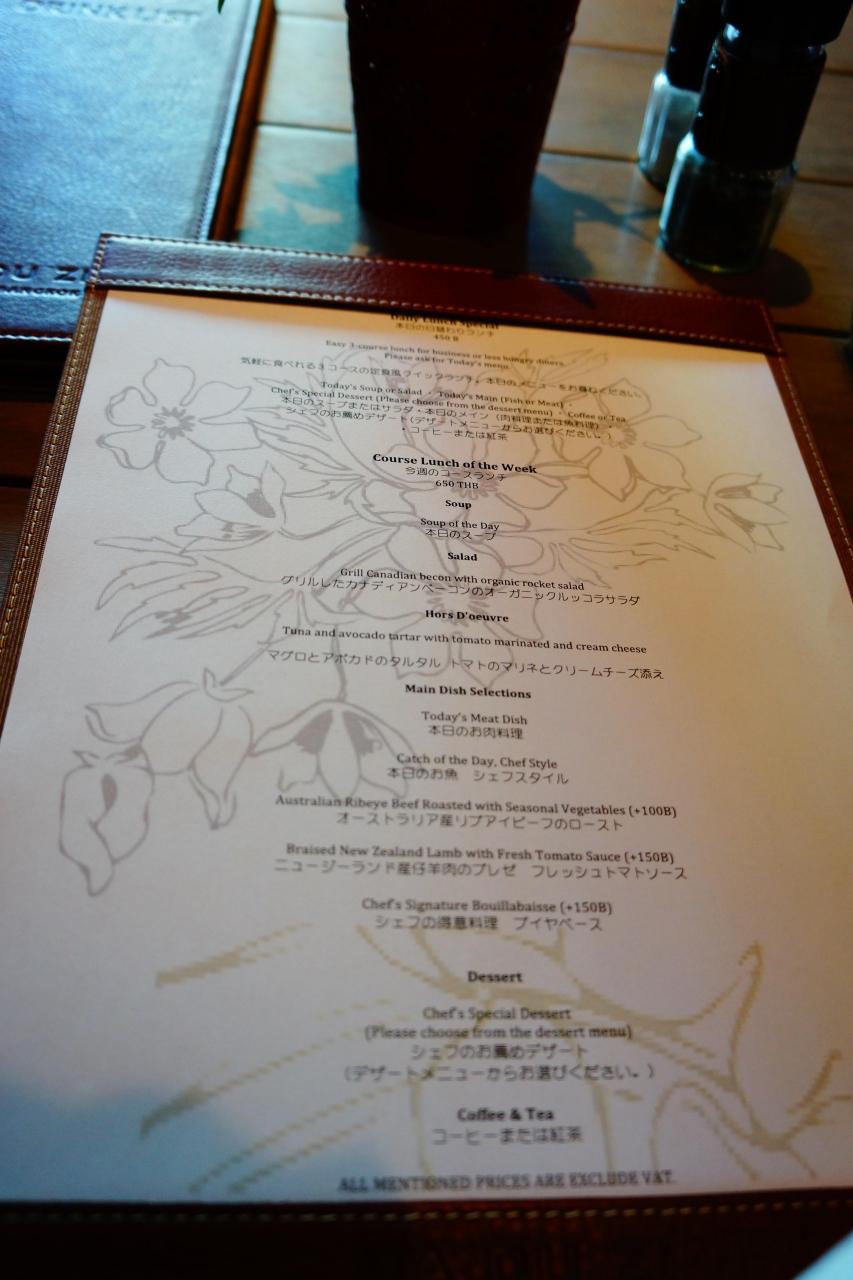 DRINK LIST
Daily Lunch Special
本日の日替わりランチ
450 B
Easy 3-course lunch for business or less hungry diners.
Please ask for Today's menu.
気軽に食べれる3コースの定食風クイックランチ。本日のメニューをお尋ねください。
Today's Soup or Salad ・ Today's Main (Fish or Meat) ・
Chef's Special Dessert (Please choose from the dessert menu) ・ Coffee or Tea
本日のスープまたはサラダ・本日のメイン (肉料理または魚料理) ・
シェフのお薦めデザート(デザートメニューからお選びください。)
・コーヒーまたは紅茶
Course Lunch of the Week
今週のコースランチ
650 THB
Soup
Soup of the Day
本日のスープ
Salad
Grill Canadian becon with organic rocket salad
グリルしたカナディアンベーコンのオーガニックルッコラサラダ
Hors D'oeuvre
Tuna and avocado tartar with tomato marinated and cream cheese
マグロとアボカドのタルタル トマトのマリネとクリームチーズ添え
Main Dish Selections
Today's Meat Dish
本日のお肉料理
Catch of the Day, Chef Style
本日のお魚 シェフスタイル
Australian Ribeye Beef Roasted with Seasonal Vegetables (+100B)
オーストラリア産リブアイビーフのロースト
Braised New Zealand Lamb with Fresh Tomato Sauce (+150B)
ニュージーランド産仔羊肉のブレゼ フレッシュトマトソース
Chef's Signature Bouillabaisse (+150B)
シェフの得意料理 ブイヤベース
Dessert
Chef's Special Dessert
(Please choose from the dessert menu)
シェフのお薦めデザート
(デザートメニューからお選びください。)
Coffee & Tea
コーヒーまたは紅茶
ALL MENTIONED PRICES ARE EXCLUDE VAT.